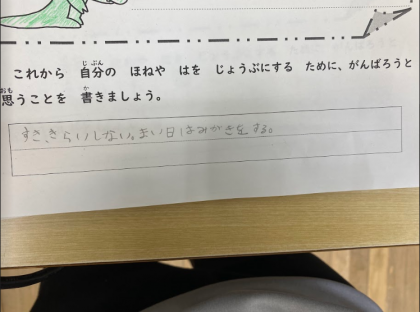 これから 自分の ほねや はを じょうぶにする ために、がんばろうと
思うことを 書きましょう。
すききらいしない。まい日はみがきをする。